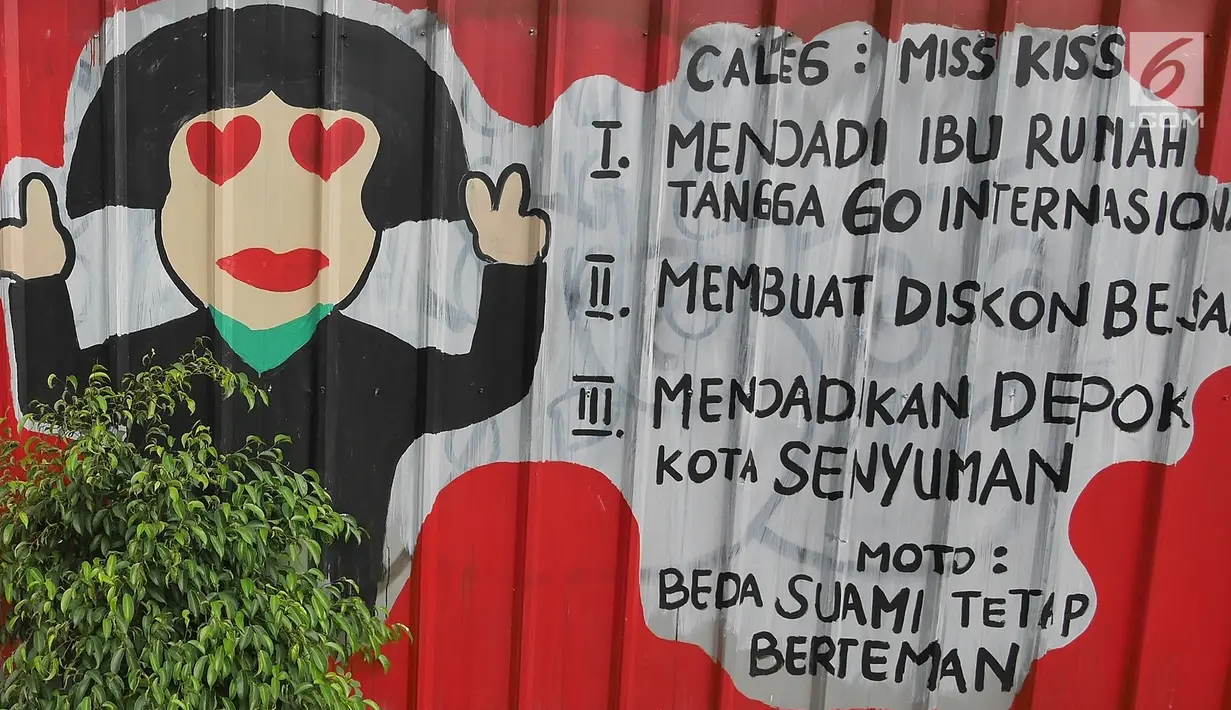 CALEG : MISS KISS
6
.COM
I. MENJADI IBU RUMAH
TANGGA GO INTERNASION
II. MEMBUAT DISKON BESA
III. MENJADIKAN DEPOK
KOTA SENYUMAN
MOTO :
BEDA SUAMI TETAP
BERTEMAN